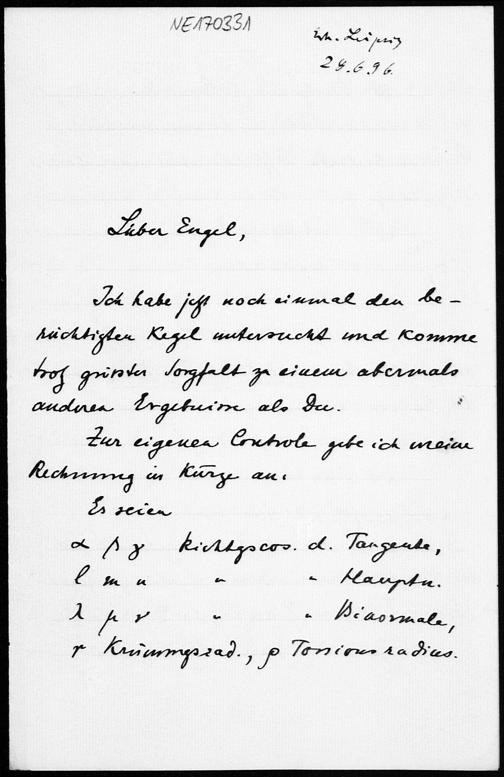 NE170331
Leipzig
29.6.96.
Lieber Engel,
Ich habe jetzt noch einmal den be-
rüchtigten Kegel untersucht und komme
trotz grösster Sorgfalt zu einem abermals
anderen Ergebnisse als Du.
Zur eigenen Controle gebe ich meine
Rechnung in Kürze an:
Es seien
α β γ Richtgscos. d. Tangente,
l m n " " Hauptn.
λ μ ν " " Binormale,
r Krümmgsrad., ρ Torsionsradius.